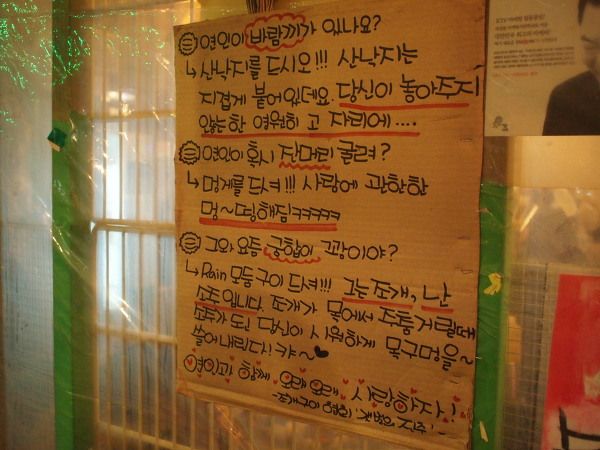 연인이 바람끼가 있나요?
↳ 산낙지를 드시오!!! 산낙지는
지겹게 붙어있데요. 당신이 놓아주지
않는한 영원히 그 자리에....
연인이 혹시 잔머리 굴려?
↳ 멍게를 드셔!!! 사랑에 관한한
멍~띵해짐ㅋㅋㅋㅋㅋ
그와 요즘 궁합이 꼬광이야?
↳ Rain 모듬구이 드셔!!! 그는 조개, 난
소주입니다. 조개가 물어서 주퉁거릴때
소주가 되고 당신이 시원하게 목구멍을~
쓸어내린다! 캬~♥
연인과 함께 오래오래 사랑하자!